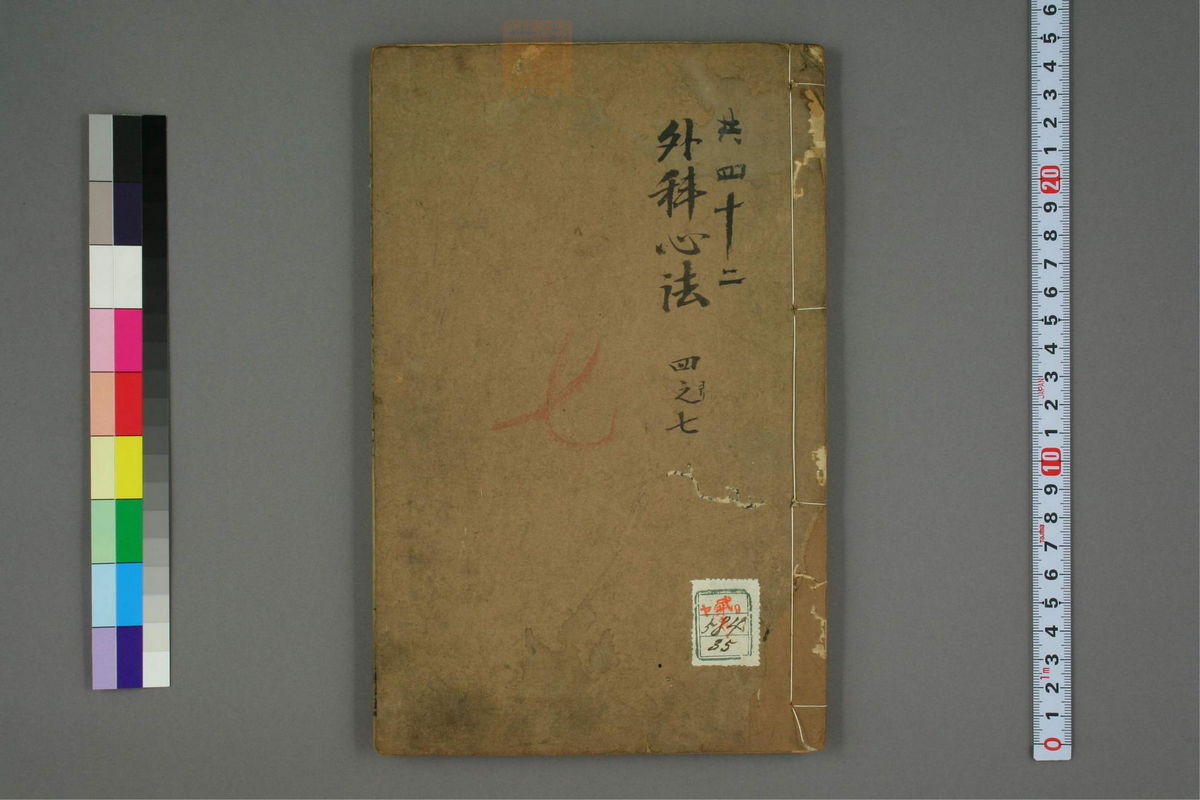 共四十二
外科心法 四之七
七
584
35
6 5 4 3 2 1 20 9 8 7 6 5 4 3 2 1 10 9 8 7 6 5 4 3 2 1 0
JAPAN
1m